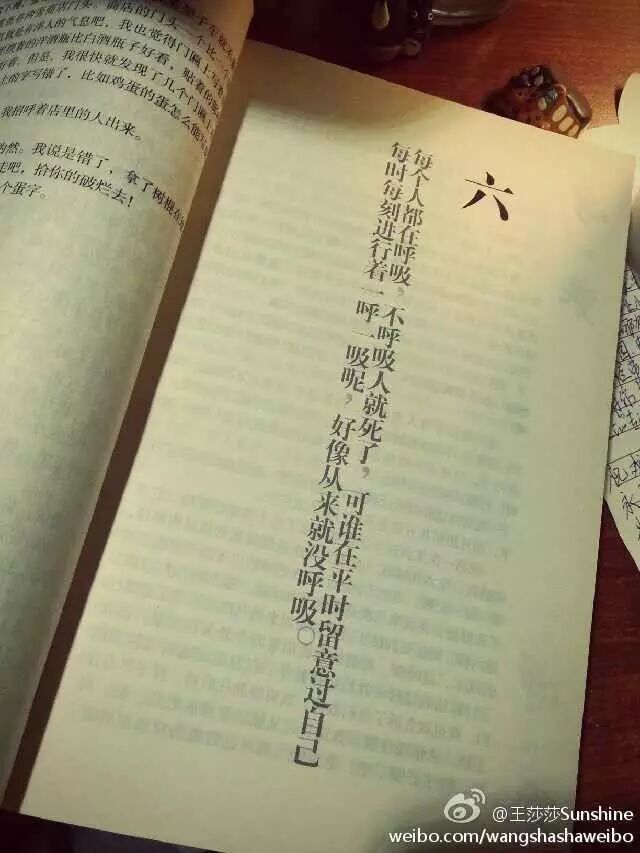 商店的门头，一个比一个
的气息吧，我也觉得门匾上写
的洋酒瓶比白酒瓶子好看，贴着的
好看。但是，我很快就发现了几个门匾
上的字写错了，比如鸡蛋的蛋怎么能写
我招呼着店里的人出来。
然。我说是错了，拿了树棍在
走吧，拾你的破烂去！
个蛋字。
六
每个人都在呼吸，不呼吸人就死了，可谁在平时留意过自己
每时每刻进行着一呼一吸呢，好像从来就没呼吸。
@王莎莎Sunshine
weibo.com/wangshashaweibo